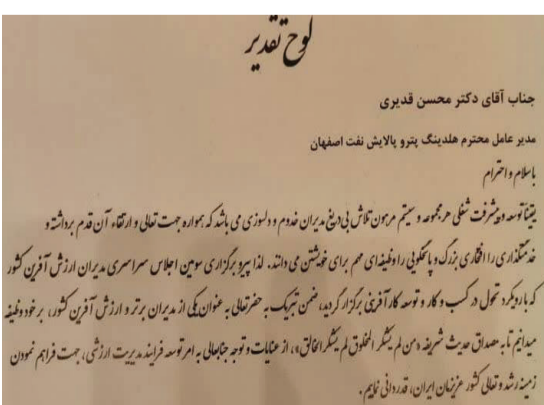 لوح تقدیر
جناب آقای دکتر محسن قدیری
مدیر عامل محترم هلدینگ پترو پالایش نفت اصفهان
باسلام و احترام
یقیناً توسعه و پیشرفت شغلی هر مجموعه و سیستم مرهون تلاش بی دریغ مدیران خدوم و دلسوزی می باشد که همواره جهت تعالی و ارتقاء آن قدم برداشته و
خدمتگذاری را افتخاری بزرگ و پاسخگویی را وظیفه ای مهم برای خویشتن می دانند. لذا پیرو برگزاری سومین اجلاس سراسری مدیران ارزش آفرین کشور
که با رویکرد تحول در کسب و کار و توسعه کارآفرینی برگزار گردید، ضمن تبریک به حضرتعالی به عنوان یکی از مدیران برتر و ارزش آفرین کشور، بر خود وظیفه
میدانیم تا به مصداق حدیث شریفه «من لم یشکر المخلوق لم یشکر الخالق»، از عنایات و توجه جنابعالی به امر توسعه فرایند مدیریت ارزشی، جهت فراهم نمودن
زمینه رشد و تعالی کشور عزیزمان ایران، قدردانی نماییم.